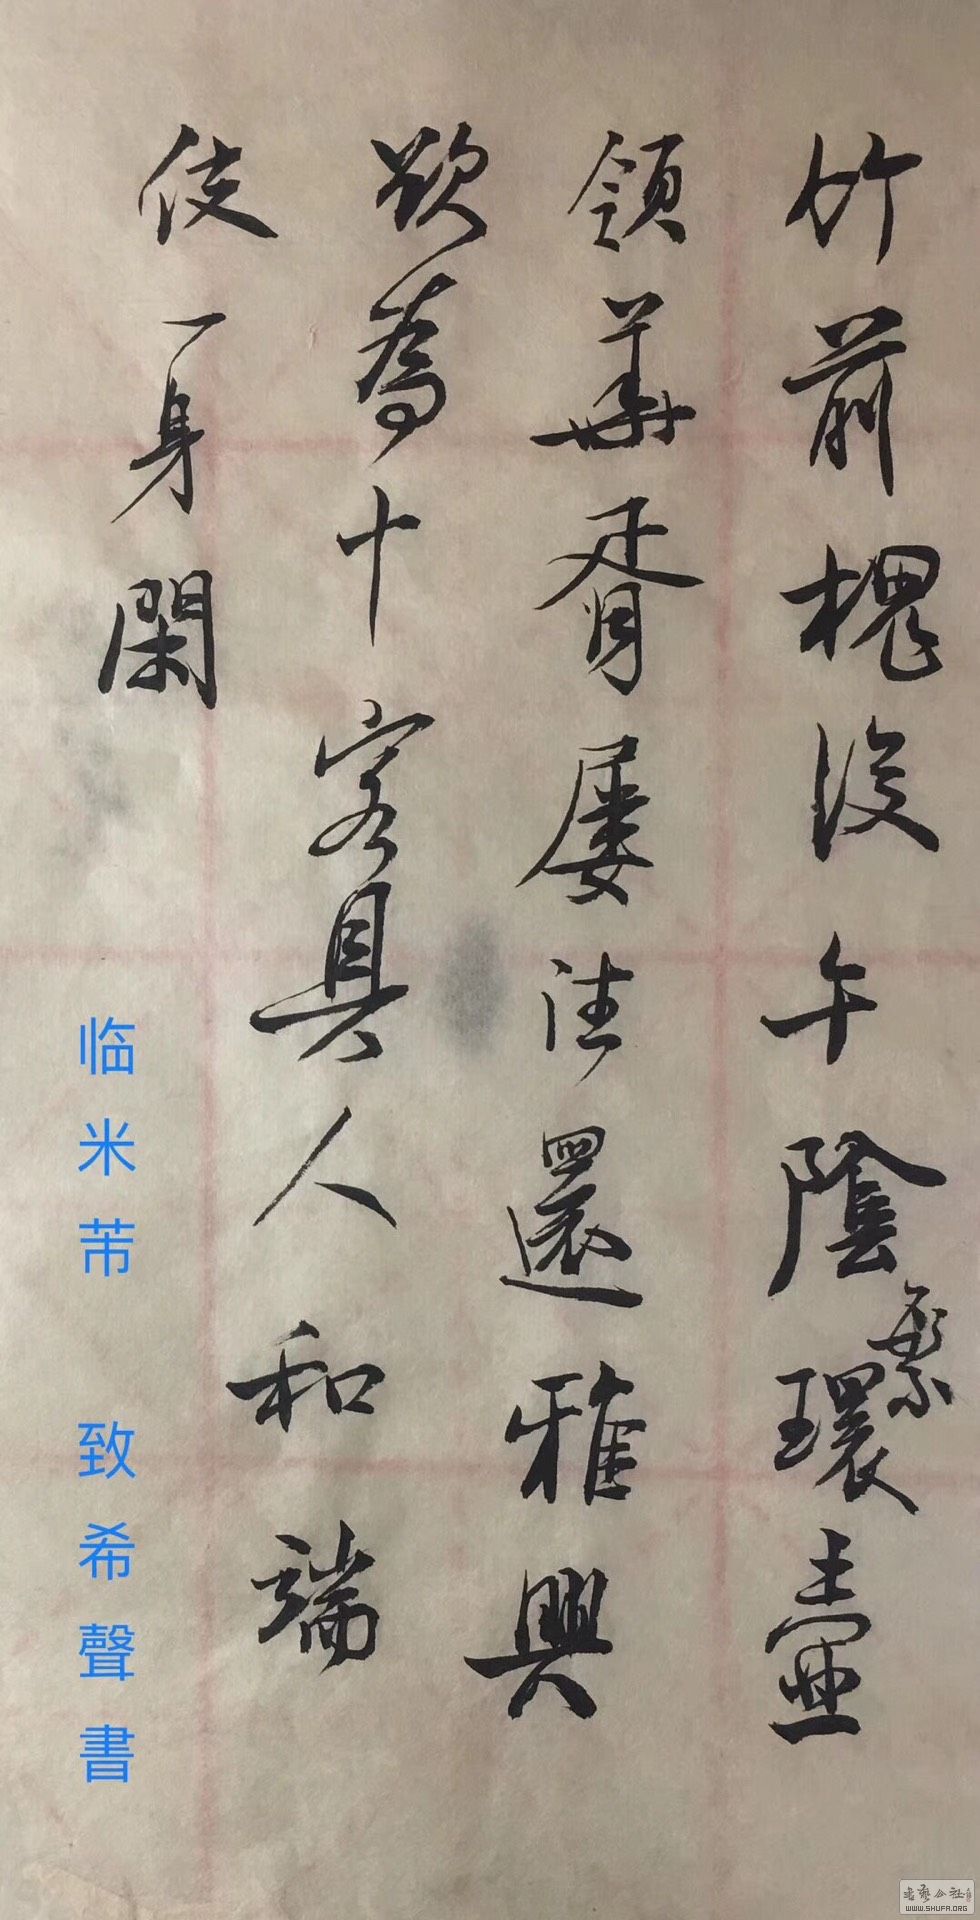 竹前槐後午陰繁環壺
領華胥屢往還雅興
欲為十客具人和端
使一身閑
临米芾 致希聲書
書藝公社
WWW.SHUFA.ORG